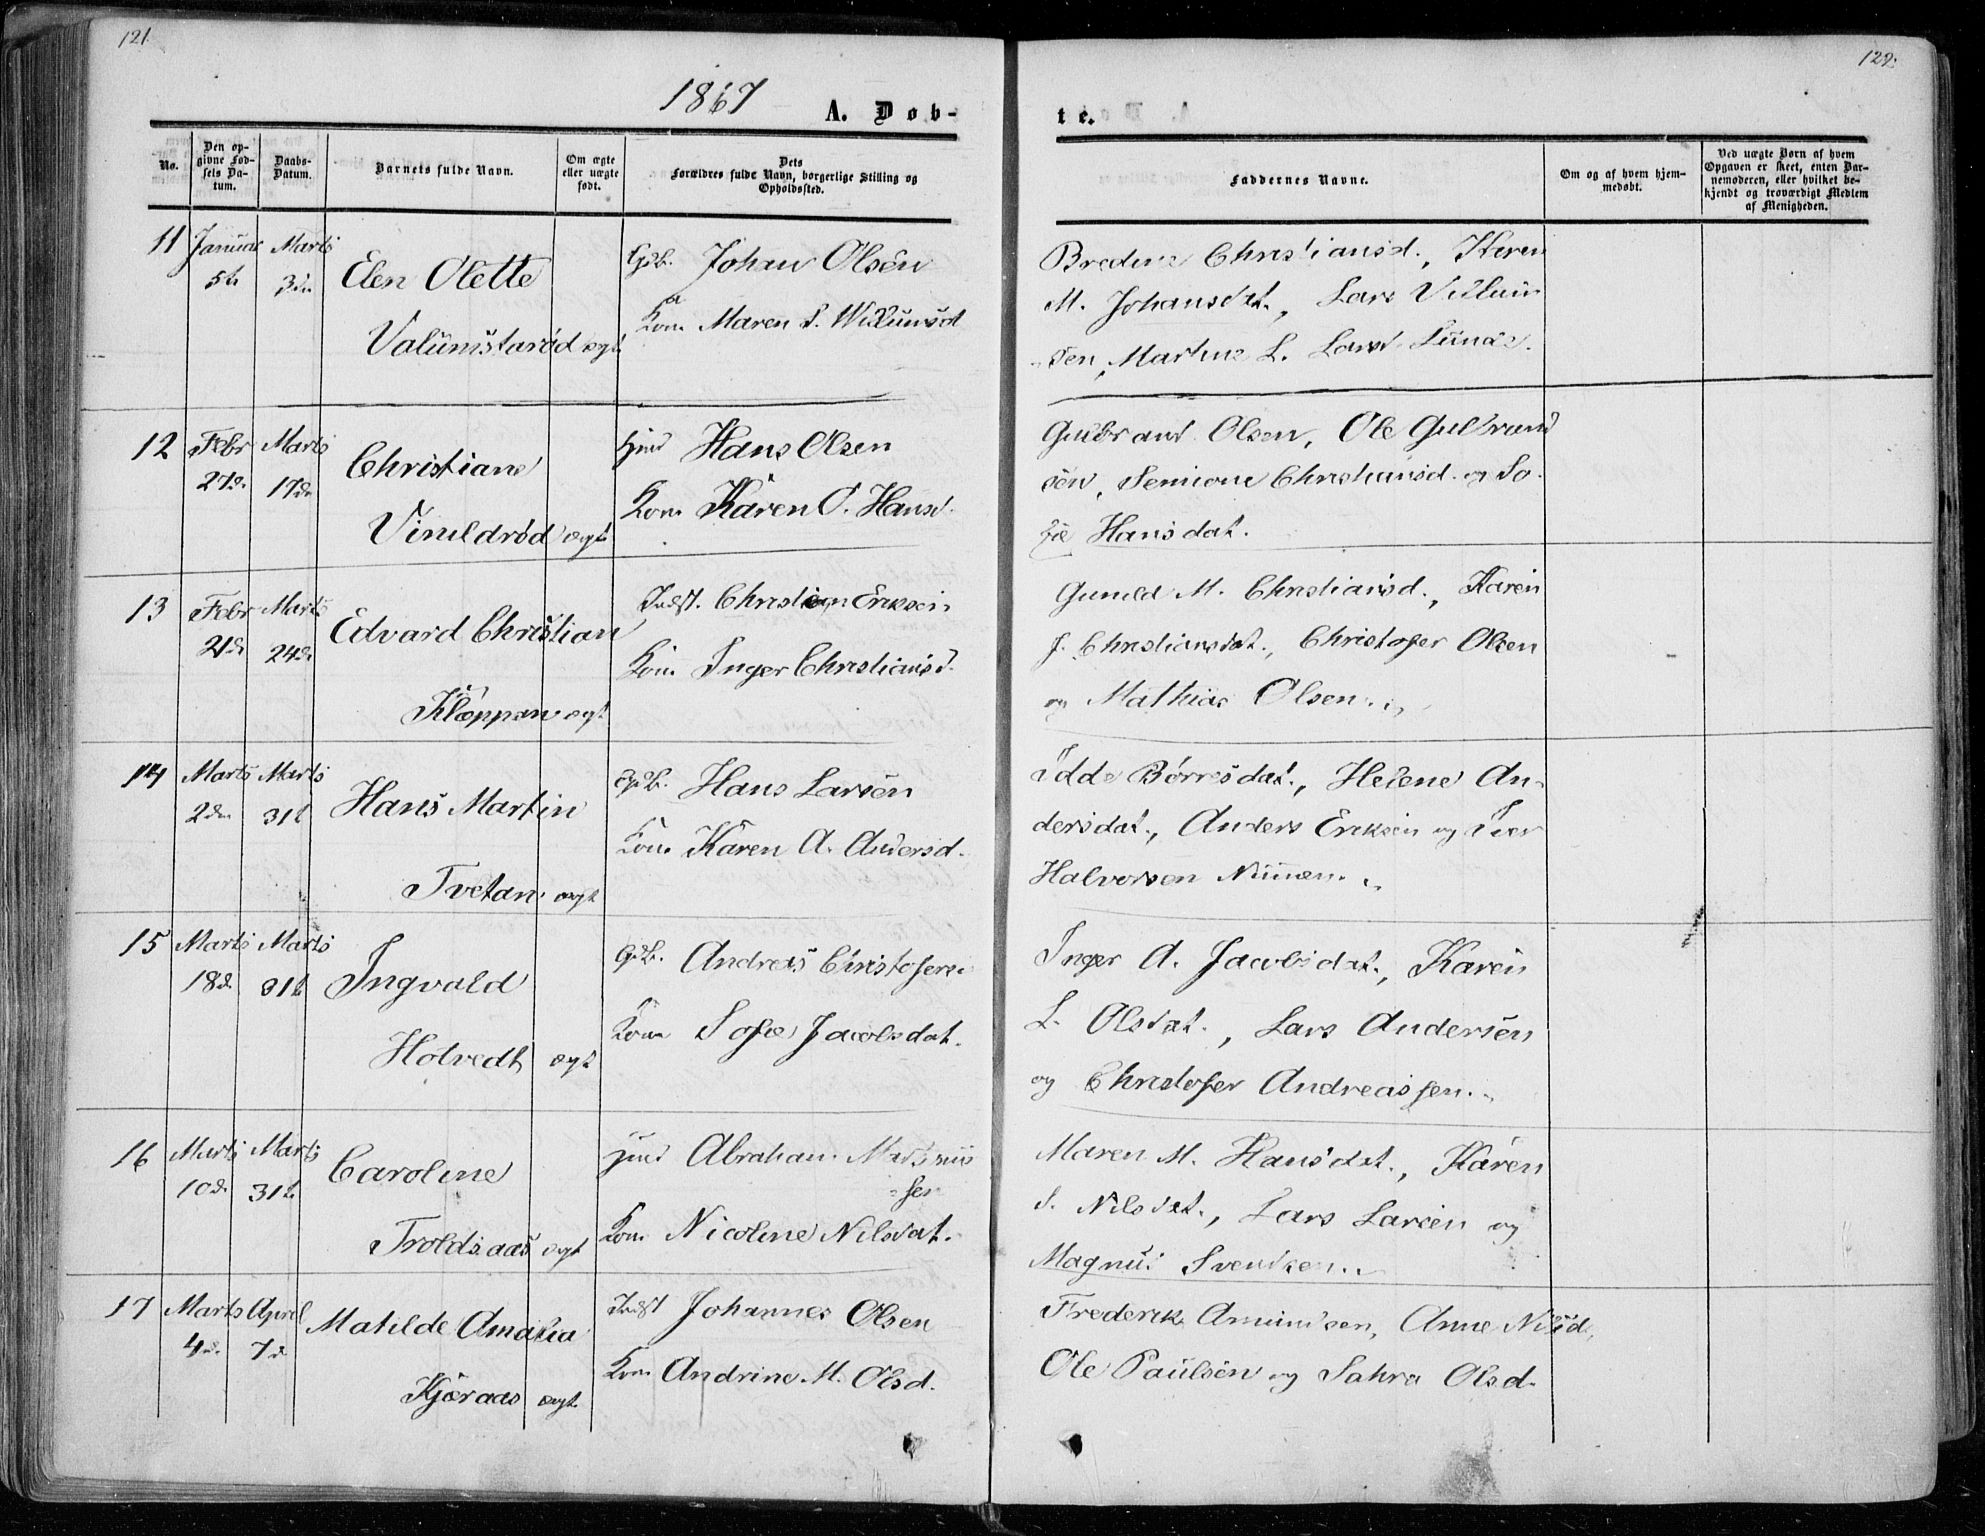 121.
122.
1867
A. Døb-
te.
No.
Den op-
givne Fød-
sels Da-
tum.
Daabs-
Datum.
Barnets fulde Navn.
Om ægte
eller uægte
født.
Dets
Forældres fulde Navn, borgerlige Stilling og
Opholdssted.
Faddernes Navne.
Om og af hvem hjem-
medøbt.
Ved uægte Børn af hvem
Opgaven er skeet, enten Bar-
nemoderen, eller hvilket be-
kjendt og troværdigt Medlem
af Menigheden.
11 Januar Marts
5te 3die
Elen Olette
Valumstarød ægt
Gdb. Johan Olsen
Kone Maren S. Willumsd
Bredine Christiansd., Karen
M. Johansdat., Lars Villum
sen, Martine L. Larsd. Lunde.
12 Febr Marts
27de 17de
Christiane
Virildrød ægt
Hmd Hans Olsen
Kone Karen O. Hansd.
Gulbrand Olsen, Ole Gulbrand
sen, Semione Christiansd. og So-
fie Hansdat.
13 Febr Marts
21de 24de
Edvard Christian
Kloppen ægt
Indst. Christian Eriksen
Kone Inger Christiansd.
Guneld M. Christiansd., Karen
J. Christiansdat., Christofer Olsen
og Mathias Olsen.
14 Marts Marts
2den 31te
Hans Martin
Tvetan ægt
Gdb. Hans Larsen
Kone Karen A. Andersd.
Idde Børresdat., Helene An-
dersdat., Anders Eriksen og Iver
Halvorsen Numen.
15 Marts Marts
18de 31te
Ingvald
Holvedt ægt
Gdb. Andreas Christofersen
Kone Sofie Jacobsdat.
Inger A. Jacobsdat., Karen
L. Olsdat., Lars Andersen
og Christofer Andreassen.
16 Marts Marts
10de 31te
Caroline
Troldsaas ægt
Hmd Abraham
sen
Kone Nicoline Nilsdat.
Maren M. Hansdat., Karen
S. Nilsdat., Lars Larsen og
Magnus Svendsen.
17 Marts April
4de 7de
Matilde Amalia
Kjæraas ægt.
Indst Johannes Olsen
Kone Andrine M. Olsd.
Frederik Amundsen, Anne Nilsd,
Ole Paulsen og Sahra Olsd.